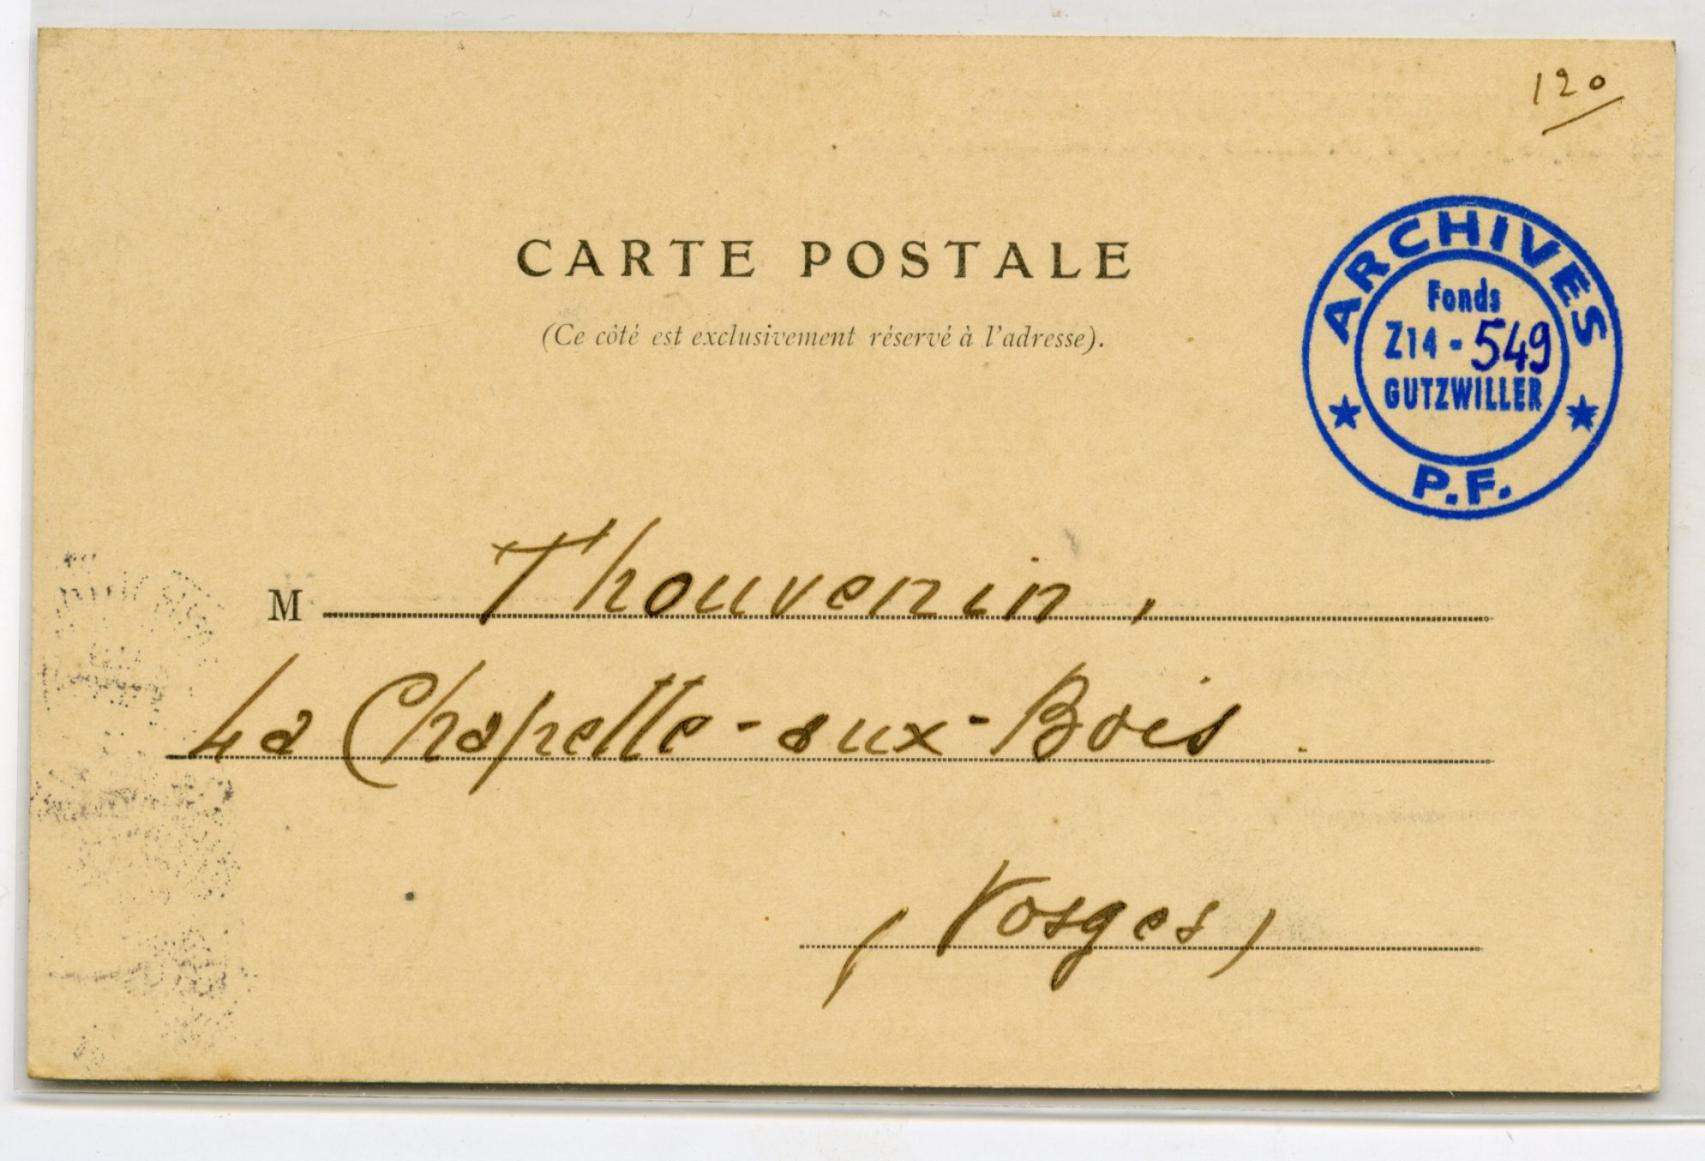 120
CARTE POSTALE
(Ce côté est exclusivement réservé à l'adresse).
ARCHIVES
Fonds
Z14 - 549
GUTZWILLER
P.F.
M Thouvenin,
La Chapelle-aux-Bois.
(Vosges)